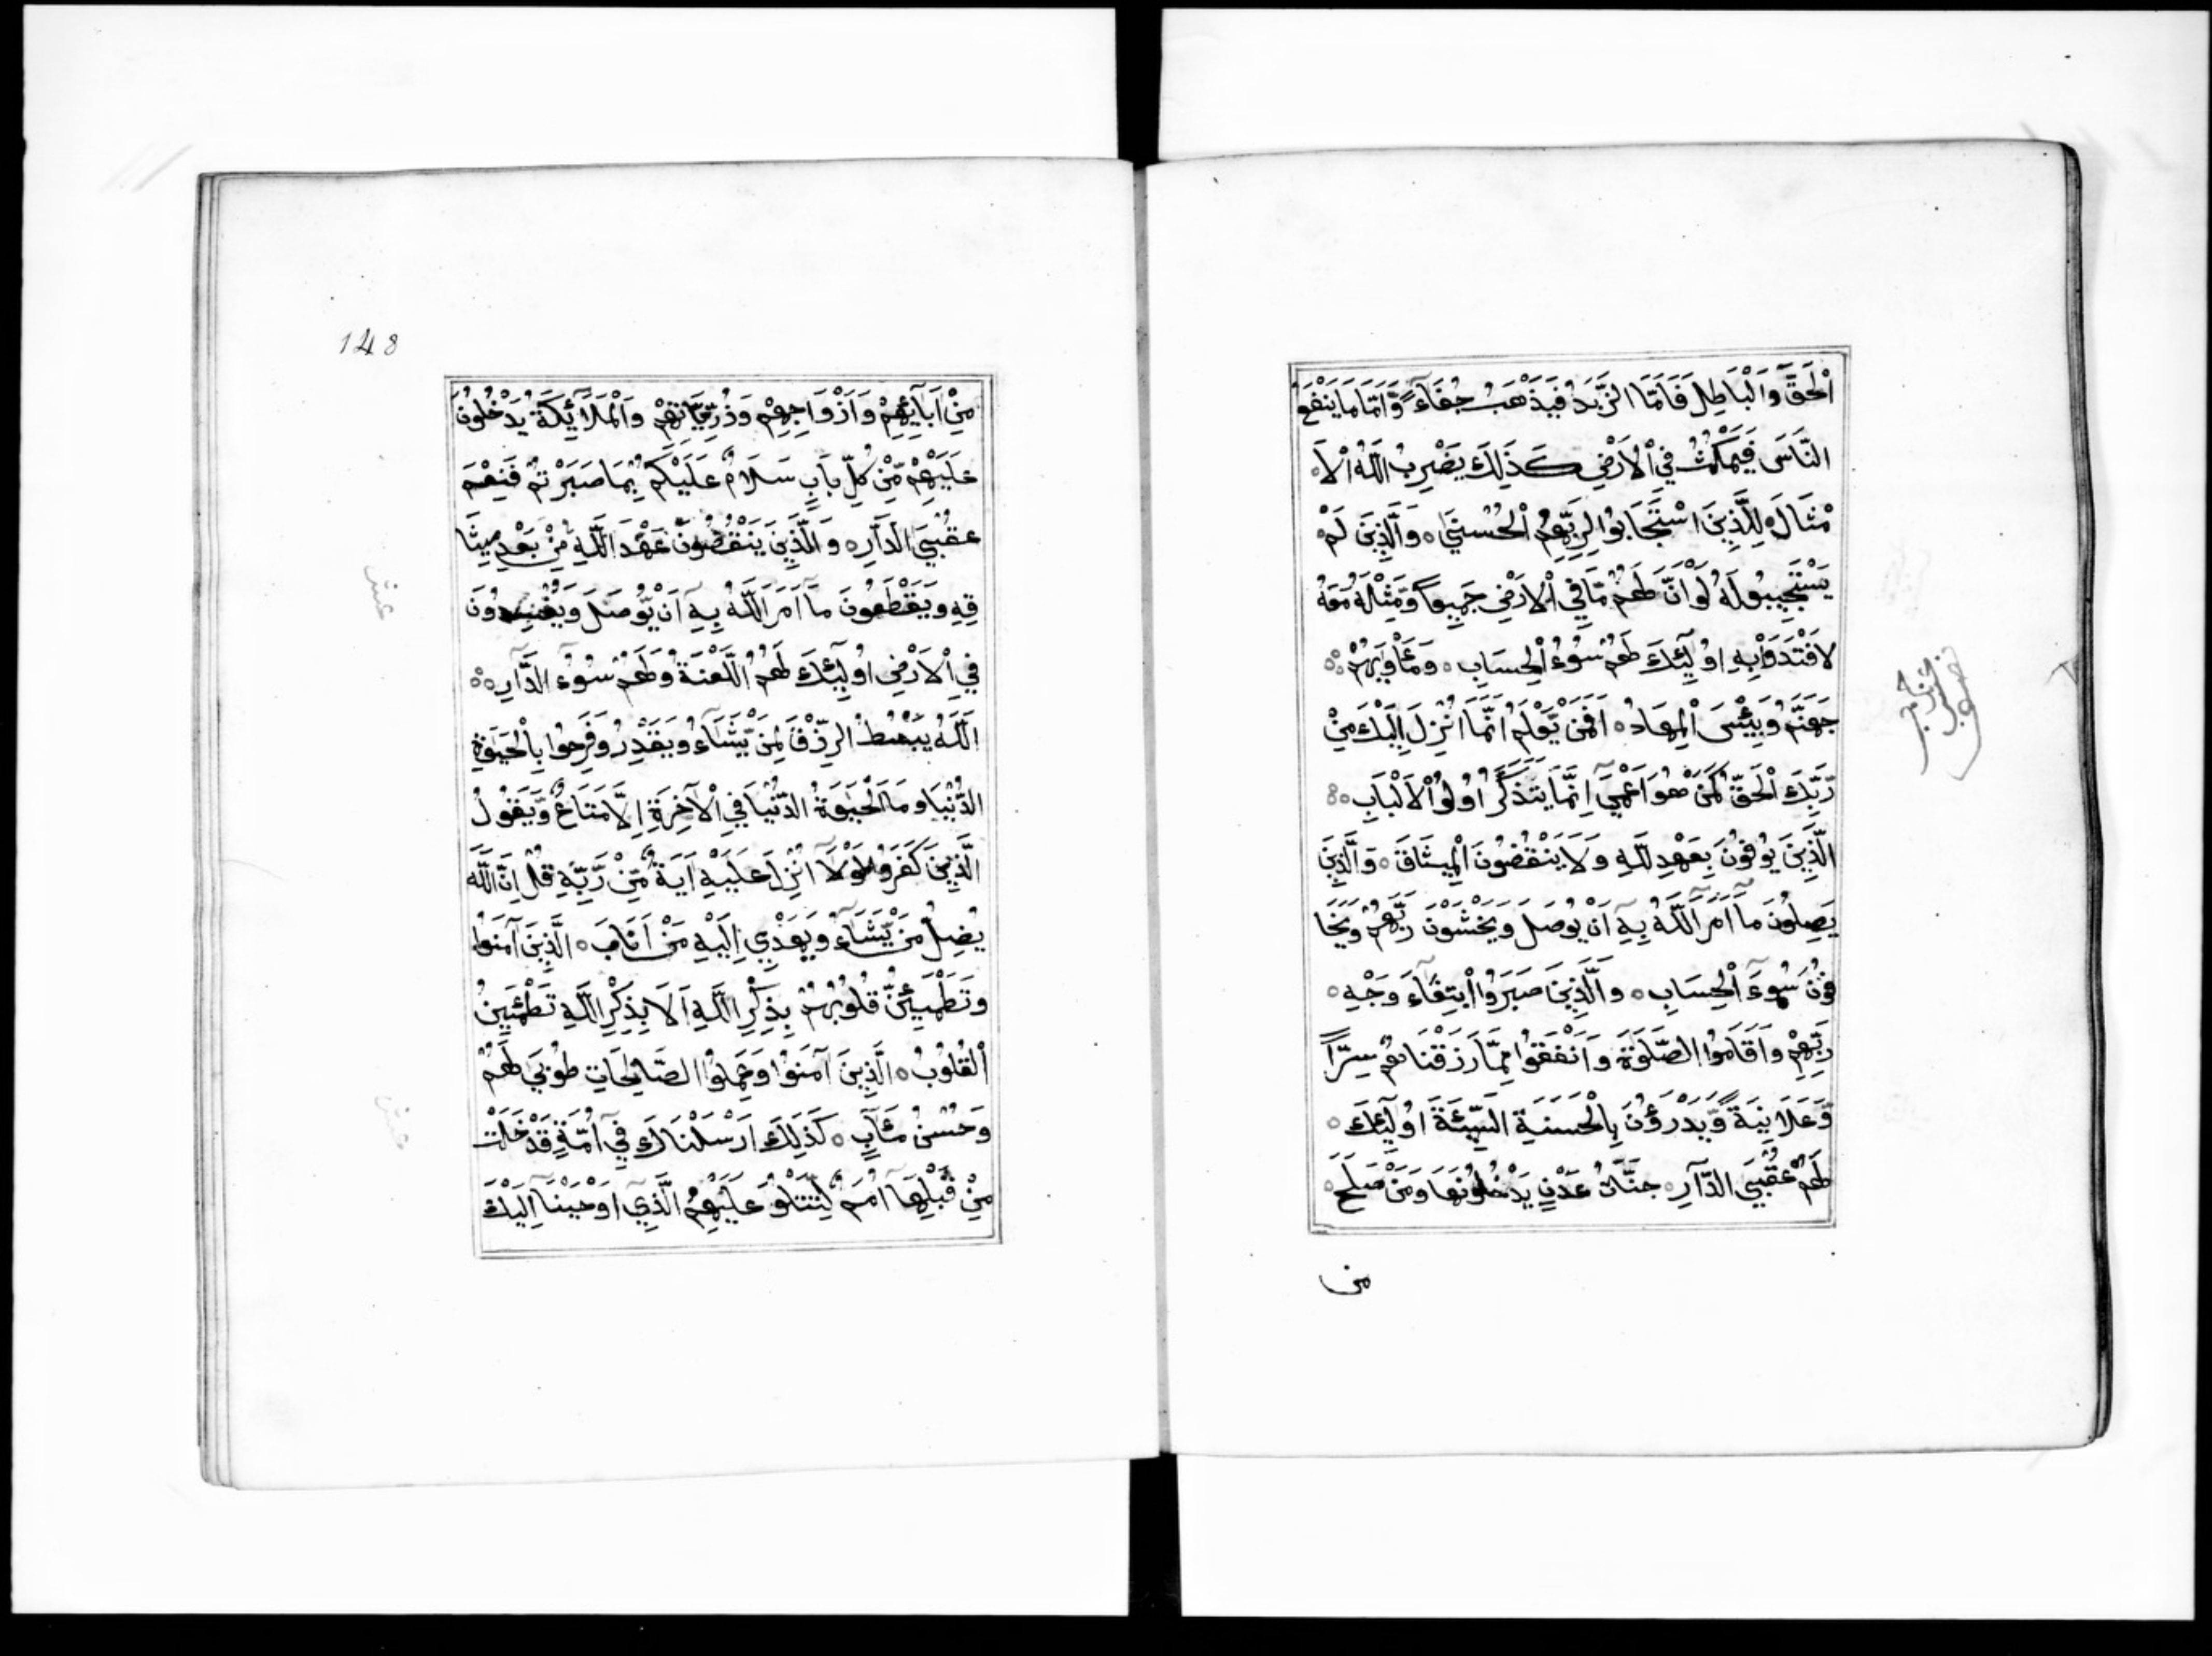 اْلحَقَّ وَاَلْبَاطِلَ فَاَمَّا الزَّبَدُ فَيَذْهَبُ جُفَآءً وَّاَمَّا مَا يَنْفَعُ
النَّاسَ فَيَمْكُثُ فِي اْلاَرْضِ كَذَلِكَ يَضْرِبُ اللَّهُ اْلاَ
مْثَالَ ه لِلَّذِينَ اسْتَجَابُوا لِرَبِّهِمُ اْلحُسْنَى ه وَالَّذِينَ لَمْ
يَسْتَجِيبُو لَهُ لَوْ اَنَّ لَهُمْ مَّا فِي اْلاَرْضِ جَمِيعاً وَّمِثْلَهُ مَعَهُ
لاَفْتَدَوْا بِهِ اوُلَئِكَ لَهُمْ سُوُءُ اْلحِسَابِ ه وَمَأْوَيهُمْ ه
جَهَنَّمُ وَبِئْسَ اْلمِهَادُ ه اَفَمَنْ يَّعْلَمُ اَنَّمَا اُنْزِلَ اِلَيْكَ مِنْ
رَّبِّكَ اْلحَقُّ كَمَنْ هُوَ اَعْمَى اِنَّمَا يَتَذَكَّرُ اوُلُوا اْلاَلْبَابِ ه
الَّذِينَ يوُفُونَ بِعَهْدِ للَّهِ وَلاَ يَنْقُضُونَ اْلمِيثَاقَ ه وَالَّذِينَ
يَصِلُونَ مآ اَمَرَ اللَّهُ بِهِ اَنْ يُوصَلَ وَيَخْشَوْنَ رَبَّهُمْ وَيَخَا
فُونَ سُوءَ اْلحِسَابِ ه وَالَّذِينَ صَبَرُوا ابْتِغَآءَ وَجْهِ ه
رَبِّهِمْ وَاَقَامُوا الصَّلَوةَ وَاَنْفَقُوا مِمَّا رَزَقْنَاهُمْ سِرّاً
وَّعَلاَنِيَةً وَّيَدْرَؤُنَ بِاْلحَسَنَةِ السَّيِّئَةَ اوُلَئِكَ ه
لَهُمْ عُقْبَى الدَّارِ ه جَنَّاتُ عَدْنٍ يَدْخُلُونَهَا وَمَنْ صَلَحَ ه
من
148
مِنْ اَبآئِهِمْ وَاَزْوَاجِهِمْ وَذُرِّيَّاتِهِمْ وَاْلمَلاَئِكَةُ يَدْخُلُونَ
عَلَيْهِمْ مِّنْ كُلِّ بَابٍ سَلاَمٌ عَلَيْكُمْ بِمَا صَبَرْتُمْ فَنِعْمَ
عقُبْىَ الدَّارِ ه وَالَّذِينَ يَنْقُضُونَ عَهْدَ اللَّهِ مِنْ بَعْدِ مِيثَا
قِهِ وَيَقْطَعُونَ مآ اَمَرَ اللَّهُ بِهِ اَنْ يُّوصَلَ وَيُفْسِدُونَ
فِي اْلاَرْضِ اوُلَئِكَ لَهُمُ اللَّعْنَةُ وَلَهُمْ سُوُءُ الدَّارِ ه
اَللَّهُ يَبْسُطُ الرِّزْقَ لِمَنْ يَّشَآءُ وَيَقْدِرُ وَفَرِحُوا بِاْلحَيَوةِ
الدُّنْيَا وَمَا الْحَيَوةُ الدُّنْيَا فِي اْلآخِرَةِ اِلاَّ مَتَاعٌ وَّيَقُولُ
الَّذِينَ كَفَرُوا لَوْلآَ اُنْزِلَ عَلَيْهِ آيَةٌ مِّنْ رَّبِّهِ قُلْ اِنَّ اللَّه
يُضِلُّ مَنْ يَّشَآءُ وَيَهْدِي اِلَيْهِ مَنْ اَنَابَ ه الَّذِينَ آمَنُوا
وَتَطْمَئِنُّ قُلُوبُهُمْ بِذِكْرِ اللَّهِ اَلاَ بِذِكْرِ اللَّهِ تَطْمَئِنُّ
اْلقُلُوبُ ه اَلَّذِينَ آمَنُوا وَعَمِلُوا الصَّالِحَاتِ طُوبَى لَهُمْ
وَحُسْنُ مَئَآبٍ ه كَذَلِكَ اَرْسَلْنَاكَ فِي اُمَّةٍ قَدْ خَلَتْ
مِنْ قَبْلِهَآ اُمَمٌ لِّتَتْلُوَ عَلَيْهِمُ الَّذِي اَوْحَيْنَآ اِلَيْكَ
عشر
عشر